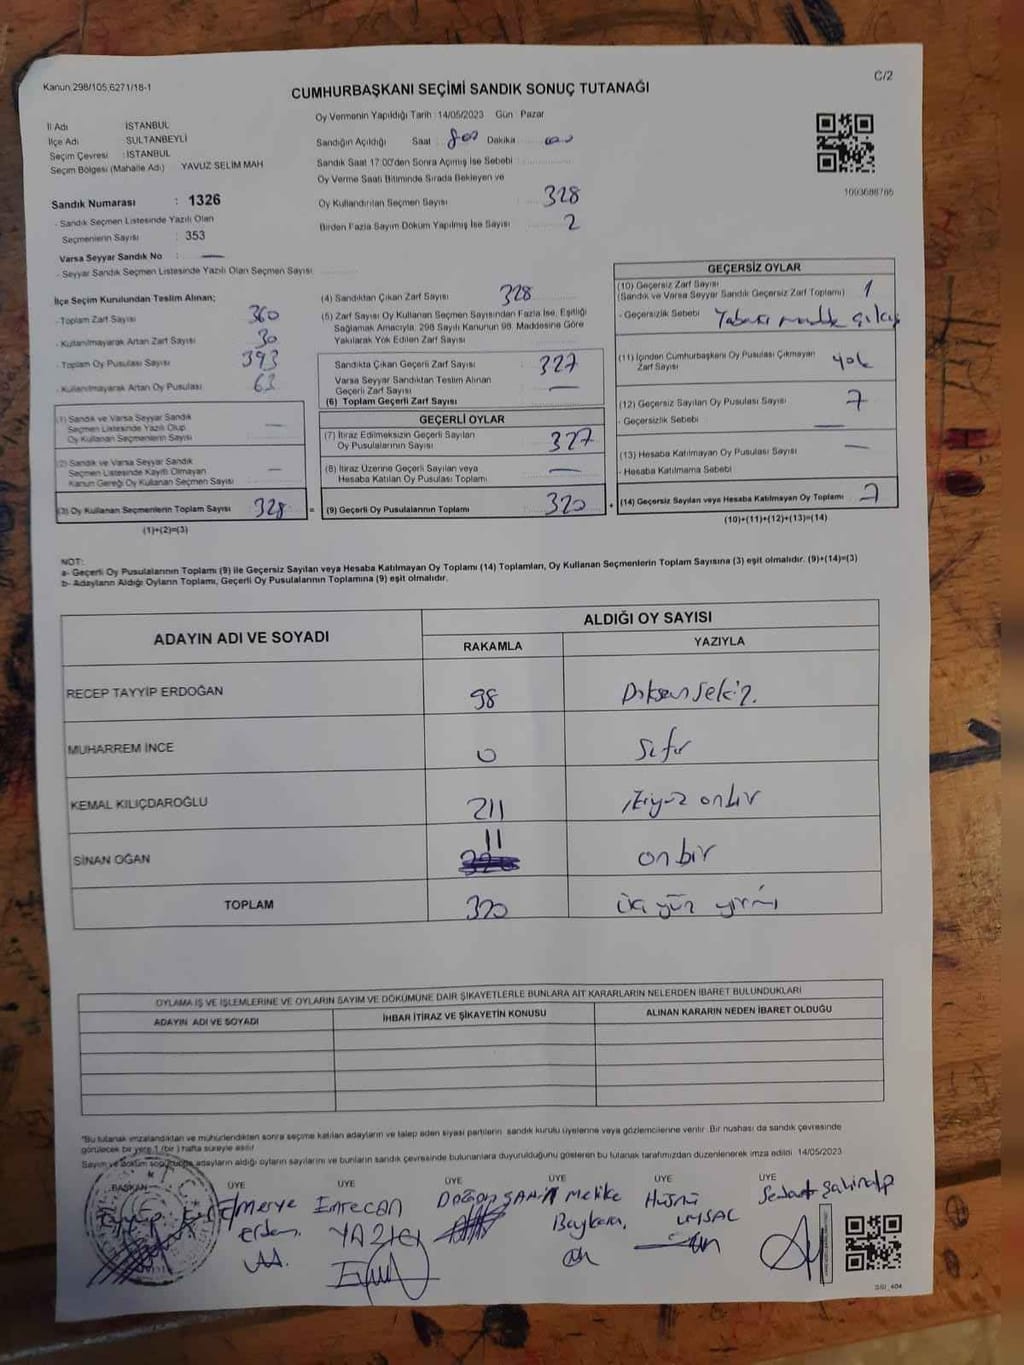 Kanun.298/105,6271/18-1
C/2
CUMHURBAŞKANI SEÇİMİ SANDIK SONUÇ TUTANAĞI
İl Adı İSTANBUL
İlçe Adı : SULTANBEYLİ
Seçim Çevresi : İSTANBUL
Seçim Bölgesi (Mahalle Adı) YAVUZ SELİM MAH
Oy Vermenin Yapıldığı Tarih : 14/05/2023 Gün : Pazar
Sandığın Açıldığı Saat : 800 Dakika
Sandık Saat 17:00'den Sonra Açımış İse Sebebi :
Oy Verme Saati Bitiminde Sırada Bekleyen ve
Oy Kullandırılan Seçmen Sayısı 328
Birden Fazla Sayım Döküm Yapılmış İse Sayısı 2
Sandık Numarası : 1326
- Sandık Seçmen Listesinde Yazılı Olan
Seçmenlerin Sayısı : 353
Varsa Seyyar Sandık No : —
- Seyyar Sandık Seçmen Listesinde Yazılı Olan Seçmen Sayısı
İlçe Seçim Kurulundan Teslim Alınan;
- Toplam Zarf Sayısı 360
- Kullanılmayarak Artan Zarf Sayısı 30
- Toplam Oy Pusulası Sayısı 393
- Kullanılmayarak Artan Oy Pusulası 63
(1) Sandık ve Varsa Seyyar Sandık
Seçmen Listesinde Yazılı Olup
Oy Kullanan Seçmenlerin Sayısı —
(2) Sandık ve Varsa Seyyar Sandık
Seçmen Listesinde Kayıtlı Olmayan
Kanun Gereği Oy Kullanan Seçmen Sayısı —
(3) Oy Kullanan Seçmenlerin Toplam Sayısı 328
(1)+(2)=(3)
(4) Sandıktan Çıkan Zarf Sayısı 328
(5) Zarf Sayısı Oy Kullanan Seçmen Sayısından Fazla İse, Eşitliği
Sağlamak Amacıyla; 298 Sayılı Kanunun 98. Maddesine Göre
Yakılarak Yok Edilen Zarf Sayısı
Sandıkta Çıkan Geçerli Zarf Sayısı : 327
Varsa Seyyar Sandıktan Teslim Alınan
Geçerli Zarf Sayısı —
(6) Toplam Geçerli Zarf Sayısı
GEÇERLİ OYLAR
(7) İtiraz Edilmeksizin Geçerli Sayılan
Oy Pusulalarının Sayısı 327
(8) İtiraz Üzerine Geçerli Sayılan veya
Hesaba Katılan Oy Pusulası Toplamı —
= (9) Geçerli Oy Pusulalarının Toplamı 320 +
GEÇERSİZ OYLAR
(10) Geçersiz Zarf Sayısı
(Sandık ve Varsa Seyyar Sandık Geçersiz Zarf Toplamı) 1
- Geçersizlik Sebebi
(11) İçinden Cumhurbaşkanı Oy Pusulası Çıkmayan
Zarf Sayısı
(12) Geçersiz Sayılan Oy Pusulası Sayısı : 7
- Geçersizlik Sebebi —
(13) Hesaba Katılmayan Oy Pusulası Sayısı —
- Hesaba Katılmama Sebebi
(14) Geçersiz Sayılan veya Hesaba Katılmayan Oy Toplamı 7
(10)+(11)+(12)+(13)=(14)
NOT:
a- Geçerli Oy Pusulalarının Toplamı (9) ile Geçersiz Sayılan veya Hesaba Katılmayan Oy Toplamı (14) Toplamları, Oy Kullanan Seçmenlerin Toplam Sayısına (3) eşit olmalıdır. (9)+(14)=(3)
b- Adayların Aldığı Oyların Toplamı, Geçerli Oy Pusulalarının Toplamına (9) eşit olmalıdır.
ADAYIN ADI VE SOYADI ALDIĞI OY SAYISI
RAKAMLA YAZIYLA
RECEP TAYYİP ERDOĞAN 98 Doksan Sekiz.
MUHARREM İNCE 0 Sıfır
KEMAL KILIÇDAROĞLU 211 ikiyüz onbir
SİNAN OĞAN 11 onbir
TOPLAM 320 üç yüz yirmi
OYLAMA İŞ VE İŞLEMLERİNE VE OYLARIN SAYIM VE DÖKÜMÜNE DAİR ŞİKAYETLERLE BUNLARA AİT KARARLARIN NELERDEN İBARET BULUNDUKLARI
ADAYIN ADI VE SOYADI İHBAR İTİRAZ VE ŞİKAYETİN KONUSU ALINAN KARARIN NEDEN İBARET OLDUĞU
"Bu tutanak imzalandıktan ve mühürlendikten sonra seçime katılan adayların ve talep eden siyasi partilerin sandık kurulu üyelerine veya gözlemcilerine verilir. Bir nushası da sandık çevresinde
görülecek bir yere 1 (bir) hafta süreyle asılır.
Sayım ve döküm sonucunda adayların aldığı oyların sayılarını ve bunların sandık çevresinde bulunanlara duyurulduğunu gösteren bu tutanak tarafımızdan düzenlenerek imza edildi. 14/05/2023
BAŞKAN ÜYE ÜYE ÜYE ÜYE ÜYE
Emrecan
YAZICI
Doğan ŞAHİN
Melike
Baykara.
Hüsnü
UYSAL
Sedat Şahinalp